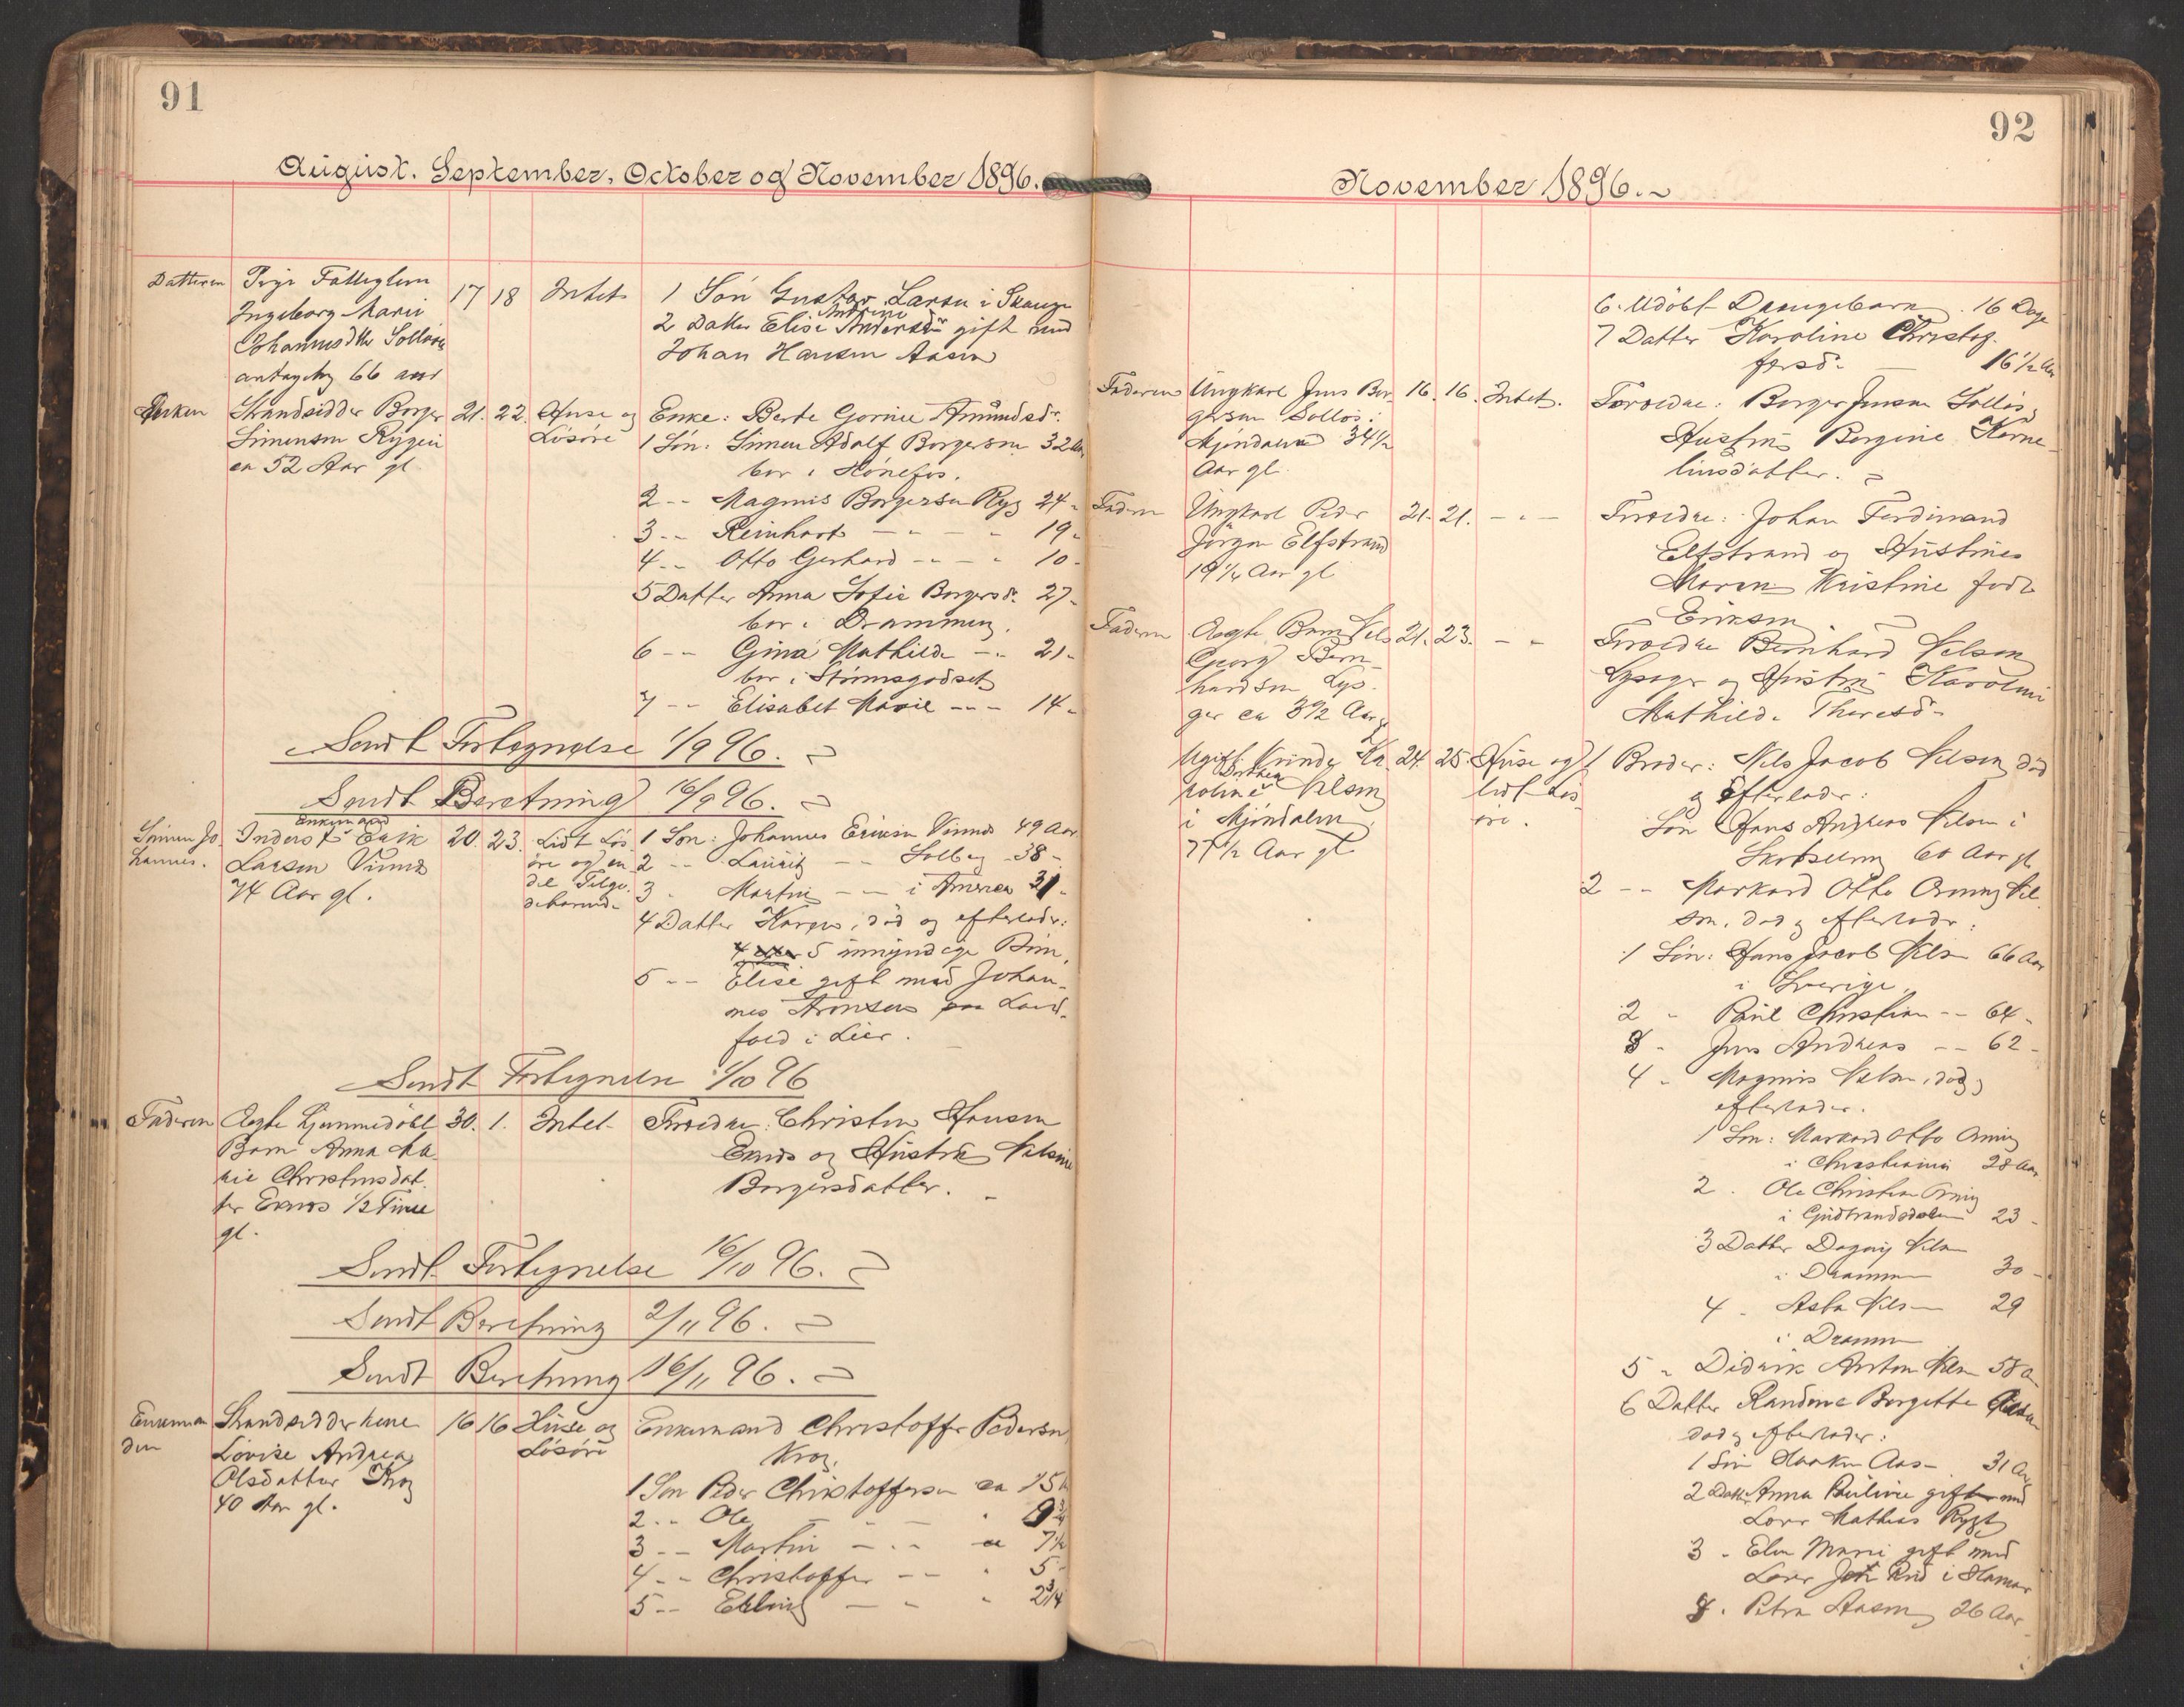 91
August. September, October og November 1896.
Datteren
Pige Fatteglem
Ingeborg Marie
Johannesdtr Solløs
antagelig 66 aar
17 18 Intet
1 Søn Gustav Larsen i Skauge
Andrine
2 Datter Elise Andersdr gift med
Johan Hansen Aasen
Enken
Strandsidder Borger
Simensen Ryggen
ca 52 Aar gl.
21. 22. Huse og
Løsøre
Enke: Berte Gorine Amundsdr.
1 Søn: Simen Adolf Borgersen 32 Aar
bor i Hønefos.
2 -- Magnus Borgersen Ryg 24 -
3 -- Reinhart - " - " 19 -
4 -- Otto Gerhard -- - " 10 -
5 Datter Anna Sofie Borgersd. 27 -
bor i Drammen.
6 -- Gina Mathilde -- 21 -
bor i Strømsgodset
7 -- Elisabet Marie --- 14 -
Sendt Fortegnelse 1/9 96.
Sendt Beretning 16/9 96.
Simen Jo
hannes.
Enkemand
Inderst Erik
Larsen Vinnes
74 Aar gl.
20. 23. Lidt Løs
øre og en
del Tilgo
dehavende
1 Søn: Johannes Eriksen Vinnes 49 Aar
2 -- Lauritz -- Solberg - 38 -
3 - Martin -- i America 31 -
4 Datter Karen, død og efterlader:
5 umyndige Børn.
5 -- Elise gift med Johan-
nes Aronsen paa Land-
fald i Lier.
Sendt Fortegnelse 1/10 96
Faderen
Ægte hjemmedøbt
Barn Anna Ma
rie Christensdat
ter Eknes 1/2 Time
gl.
30. 1. Intet
Forældre: Christen Hansen
Eknes og Hustru Nilsine
Borgersdatter.
Sendt Fortegnelse 16/10 96.
Sendt Beretning 2/11 96.
Sendt Beretning 16/11 96.
Enkeman
den
Strandsidderkone
Lovise Andrea
Olsdatter Krog
40 Aar gl.
16 16 Huse og
Løsøre
Enkemand Christoffer Pedersen
Krog.
1 Søn Peder Christoffersen ca 15
2 -- Ole - - - " 9 3/4
3 -- Martin - -- " 7 1/2
4 -- Christoffer -- " 5 -
5 -- Erling - - " 2 3/4
92
November 1896.
6. Udøbt Drengebarn. 16 Dage
7 Datter Karoline Christof-
fersd. - 16 1/2 Aar
Faderen
Ungkarl Jens Bor-
gersen Solløs i
Mjøndalen 34 1/2
Aar gl.
16. 16. Intet.
Forældre: Borger Jensen Solløs,
Hustru Borgine Korne-
liusdatter.
Faderen
Ungkarl Peder
Jørgen Elfstrand
19 1/4 Aar gl
21. 21. - " -
Forældre: Johan Ferdinand
Elfstrand og Hustrues
Maren Kristine født
Eriksen
Faderen
Ægte Barn Nils
Georg Bern-
hardsen Lys-
ger ca 3 1/2 Aar gl
21. 23. - "
Forældre Bernhard Nilsen
Lysager og Hustru Karoline
Mathilde Thoresd-
Ugift Kvinde Ka
Dorthea
roline Nilsen
i Mjøndalen
77 1/2 Aar gl
24. 25. Huse og
lidt Løs
øre.
1 Broder: Nils Jacob Nilsen død
og efterlader:
1 Søn Hans Andreas Nilsen i
Skotselven 60 Aar gl
2 -- Markord Otto Orning Nil
sen, død og efterlader:
1 Søn: Hans Jacob Nilsen 66 Aar
i Sverige.
2 - Paul Christian -- 64 -
3 - Jens Andreas -- 62 -
4 - Magnus Nilsen, død og
efterlader.
1 Søn: Markord Otto Orning
i Christiania 28 Aar
2 . Ole Christian Orning
i Gudbrandsdalen 23 -
3 Datter Dagny Nilsen
i Drammen 30 -
4 - Asta Nilsen 29
i Drammen
5 - Didrik Anton Nilsen 58 Aar
6 Datter Randine Borgette Nilsen
død og efterlader:
1 Søn Haakon Aasen. 31 Aar
2 Datter Anna Pauline gift med
Lars Mathias Rygh
3 - Elen Marie gift med
Lars i Hamar
4. Petra Aasen 26 Aar